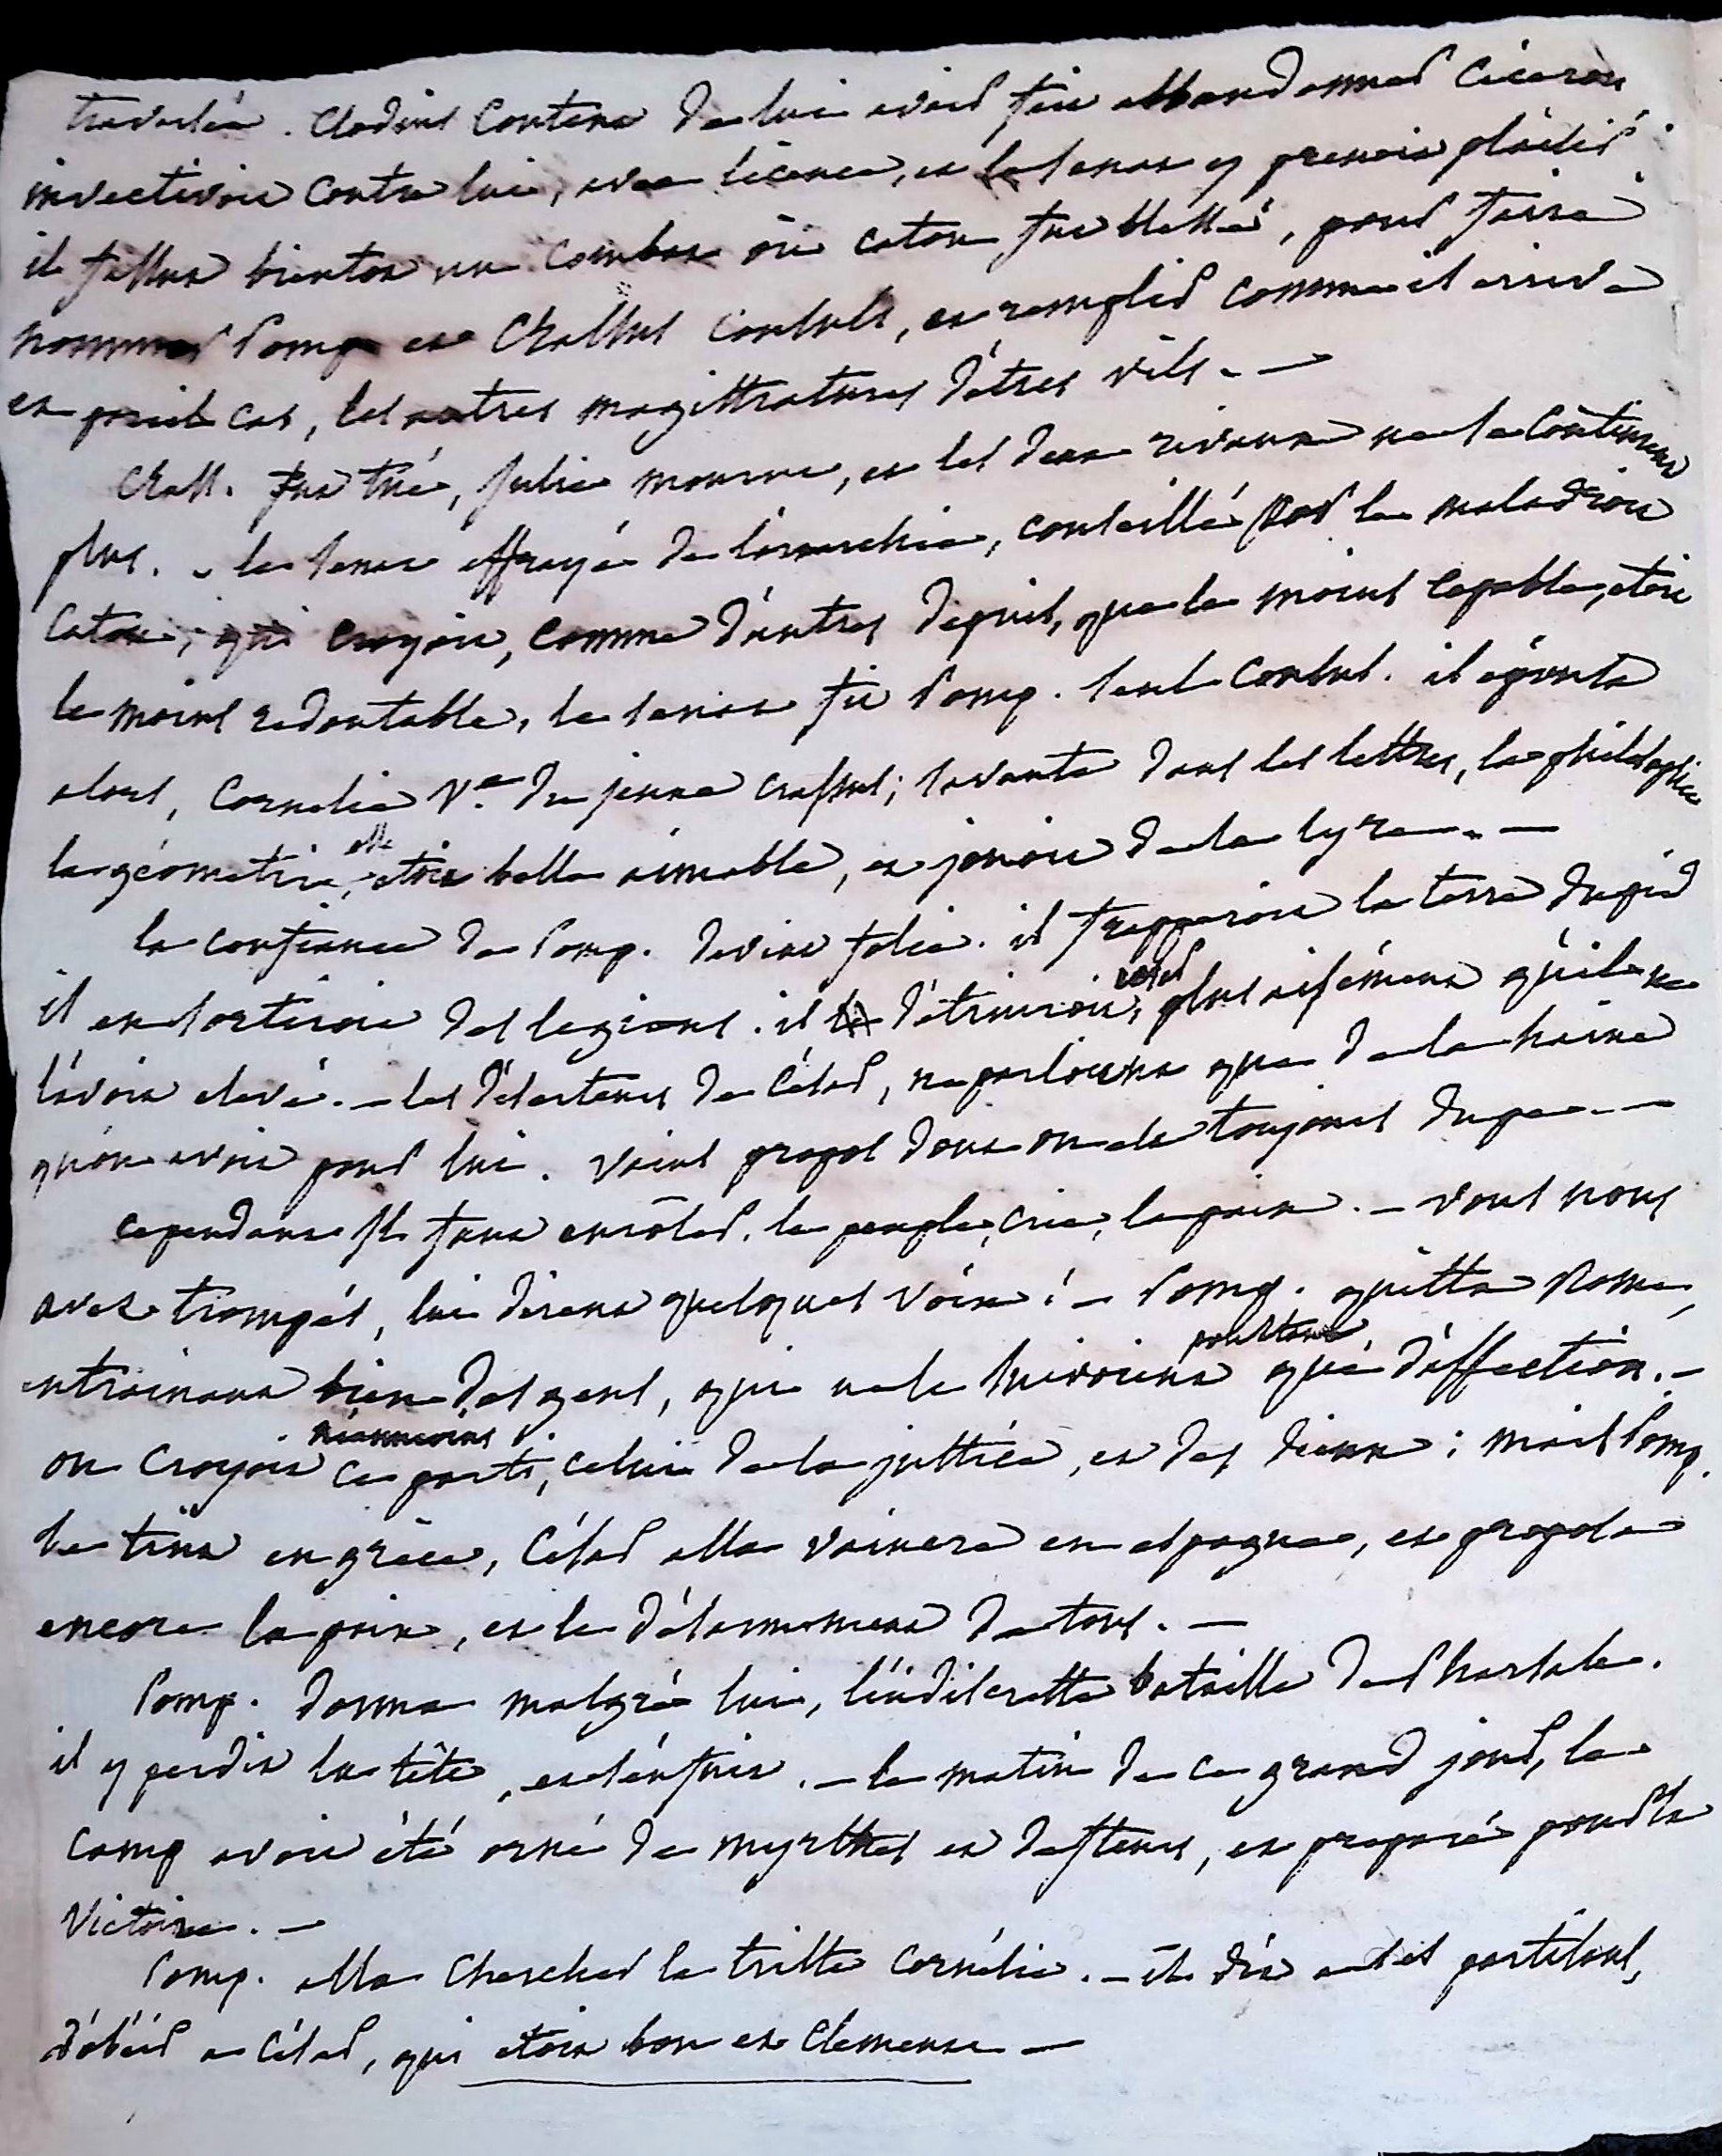 Clodius content de lui avoir fait abbandonner Ciceron
invectivoit contre lui, avec licence, et le senat y prenoit plaisir.
il fallut bientot un combat où caton fut blessé, pour faire
nommer Pomp et Crassus consuls, et remplir comme il arrive
en pareil cas, les autres magistratures d'êtres vils. —
Crass. fut tué, Julie mourut, et les deux rivaux ne se continrent
plus. — le senat effrayé de l'anarchie, conseillé par le maladroit
Caton, qui croyoit, comme d'autres depuis, que le moins capable, étoit
le moins redoutable, le senat fit Pomp. seul consul. il épousa
alors, Cornelie Ve. du jeune Crassus; savante dans les lettres, la philosophie
la géometrie, elle étoit belle aimable, et jouoit de la lyre. —
la confiance de Pomp. devint folie. il frapperoit la terre du pied
il en sortiroit des legions. il détruiroit César plus aisément qu'il ne
l'avoit elevé. — les déserteurs de César, ne parloient que de la haine
qu'on avoit pour lui. vains propos dont on est toujours dupe. —
cependant il faut enrôler. le peuple, crie, la paix. — vous nous
avez trompés, lui disent quelques voix! — Pomp. quitta Rome,
entrainant bien des gens, qui ne le suivoient pourtant que d'affection. —
on croyoit néanmoins ce parti, celui de la justice, et des dieux; mais Pomp.
se tint en grèce, César alla vaincre en espagne, et proposa
encore la paix, et le désarmement de tous. —
Pomp. donna malgré lui, l'indiscrette bataille de Pharsale.
il y perdit la tête, et s'enfuit. — le matin de ce grand jour, le
camp avoit été orné de myrthes et de fleurs, et preparé pour la
victoire. —
Pomp. alla chercher la triste Cornélie. — il dit à ses partisans,
d'obéir a César, qui etoit bon et clement —